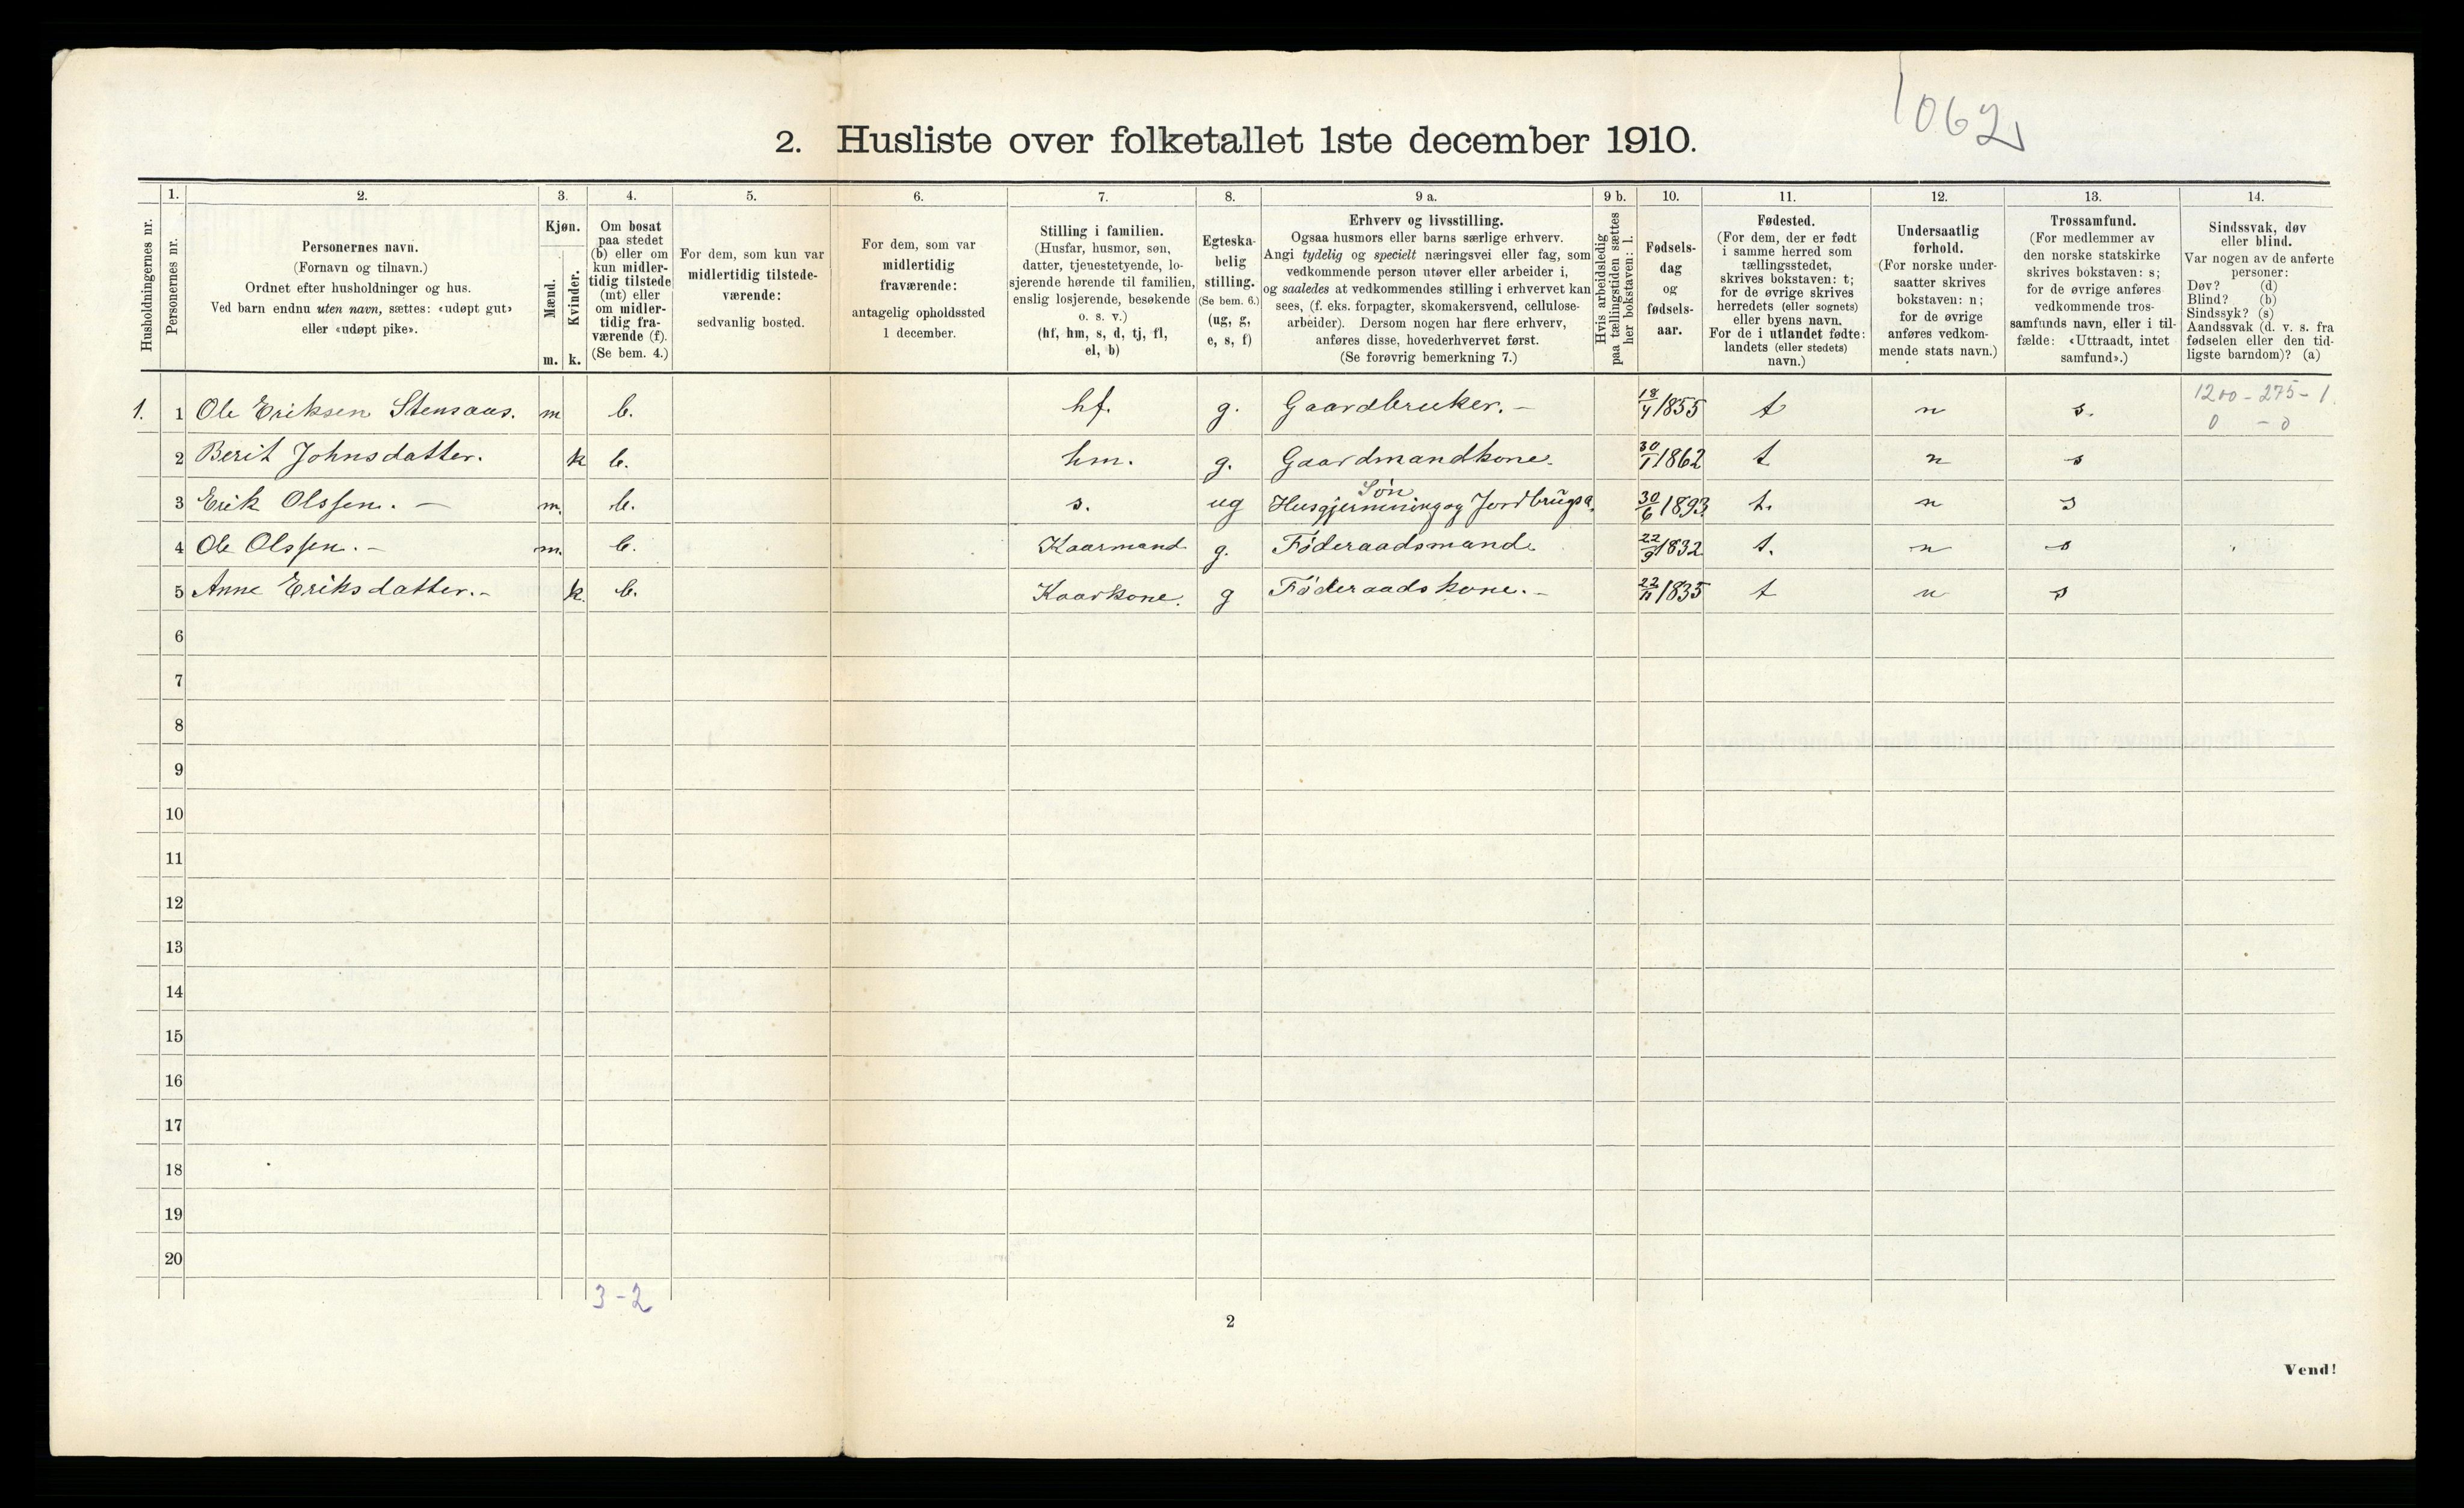 1062
2. Husliste over folketallet 1ste december 1910.
Husholdningernes nr.
1.
Personernes nr.
2.
Personernes navn.
(Fornavn og tilnavn.)
Ordnet efter husholdninger og hus.
Ved barn endnu uten navn, sættes: «udøpt gut»
eller «udøpt pike».
3.
Kjøn.
Mænd.
m.
Kvinder.
k.
4.
Om bosat
paa stedet
(b) eller om
kun midler-
tidig tilstede
(mt) eller
om midler-
tidig fra-
værende (f).
(Se bem. 4.)
5.
For dem, som kun var
midlertidig tilstede-
værende:
sedvanlig bosted.
6.
For dem, som var
midlertidig
fraværende:
antagelig opholdssted
1 december.
7.
Stilling i familien.
(Husfar, husmor, søn,
datter, tjenestetyende, lo-
sjerende hørende til familien,
enslig losjerende, besøkende
o. s. v.)
(hf, hm, s, d, tj, fl,
el, b)
8.
Egteska-
belig
stilling.
(Se bem. 6.)
(ug, g,
e, s, f)
9 a.
Erhverv og livsstilling.
Ogsaa husmors eller barns særlige erhverv.
Angi tydelig og specielt næringsvei eller fag, som
vedkommende person utøver eller arbeider i,
og saaledes at vedkommendes stilling i erhvervet kan
sees, (f. eks. forpagter, skomakersvend, cellulose-
arbeider). Dersom nogen har flere erhverv,
anføres disse, hovederhvervet først.
(Se forøvrig bemerkning 7.)
9 b.
Hvis arbeidsledig
paa tællingstiden sættes
her bokstaven: l.
10.
Fødsels-
dag
og
fødsels-
aar.
11.
Fødested.
(For dem, der er født
i samme herred som
tællingsstedet,
skrives bokstaven: t;
for de øvrige skrives
herredets (eller sognets)
eller byens navn.
For de i utlandet fødte:
landets (eller stedets)
navn.)
12.
Undersaatlig
forhold.
(For norske under-
saatter skrives
bokstaven: n;
for de øvrige
anføres vedkom-
mende stats navn.)
13.
Trossamfund.
(For medlemmer av
den norske statskirke
skrives bokstaven: s;
for de øvrige anføres
vedkommende tros-
samfunds navn, eller i til-
fælde: «Uttraadt, intet
samfund».)
14.
Sindssvak, døv
eller blind.
Var nogen av de anførte
personer:
Døv? (d)
Blind? (b)
Sindssyk? (s)
Aandssvak (d. v. s. fra
fødselen eller den tid-
ligste barndom)? (a)
1. 1 Ole Eriksen Stensaas. m b. hf. g. Gaardbruker. – 18/4 1855 t n s. 1200 – 275 – 1.
0 – 0
2 Berit Johnsdatter. k b. hm. g. Gaardmandkone. 30/1 1862 t n s
Søn
3 Erik Olssen. – m. b. s. ug Husgjerning og Jordbrugsa. 30/6 1893 t. n s
4 Ole Olssen. – m. b. Kaarmand g. Føderaadsmand. 22/9 1832 t. n s
5 Anne Eriksdatter. – k. b. Kaarkone. g Føderaadskone. – 22/11 1835 t n s
6
7
8
9
10
11
12
13
14
15
16
17
18
19
20
3 – 2
2
Vend!